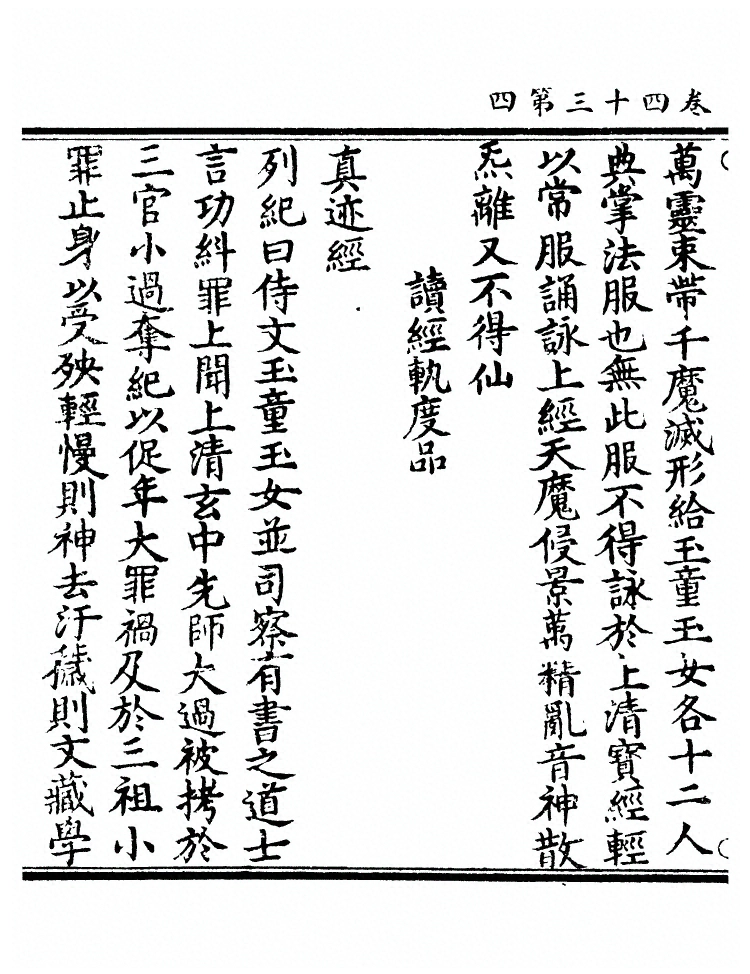 卷四十三第四
萬靈束帶千魔滅形給玉童玉女各十二人
典掌法服也無此服不得詠於上清寶經輕
以常服誦詠上經天魔侵景萬精亂音神散
炁離又不得仙
讀經軌度品
真迹經
列紀曰侍文玉童玉女並司察有書之道士
言功糾罪上聞上清玄中先師大過被拷於
三官小過奪紀以促年大罪禍及於三祖小
罪止身以受殃輕慢則神去汙穢則文藏學